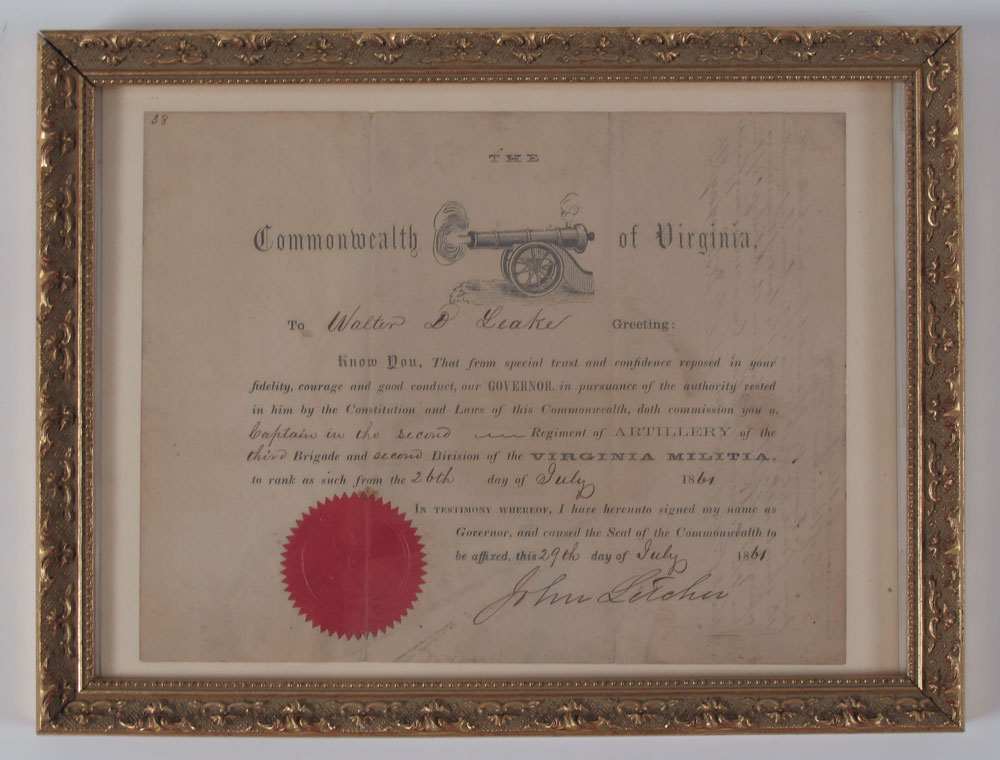 38
THE
Commonwealth of Virginia,
To Walter D Leake Greeting:
Know You, That from special trust and confidence reposed in your
fidelity, courage and good conduct, our GOVERNOR, in pursuance of the authority vested
in him by the Constitution and Laws of this Commonwealth, doth commission you a
Captain in the second Regiment of ARTILLERY of the
third Brigade and second Division of the VIRGINIA MILITIA,
to rank as such from the 26th day of July 1861
IN TESTIMONY WHEREOF, I have hereunto signed my name as
Governor, and caused the Seal of the Commonwealth to
be affixed, this 29th day of July 1861
John Letcher